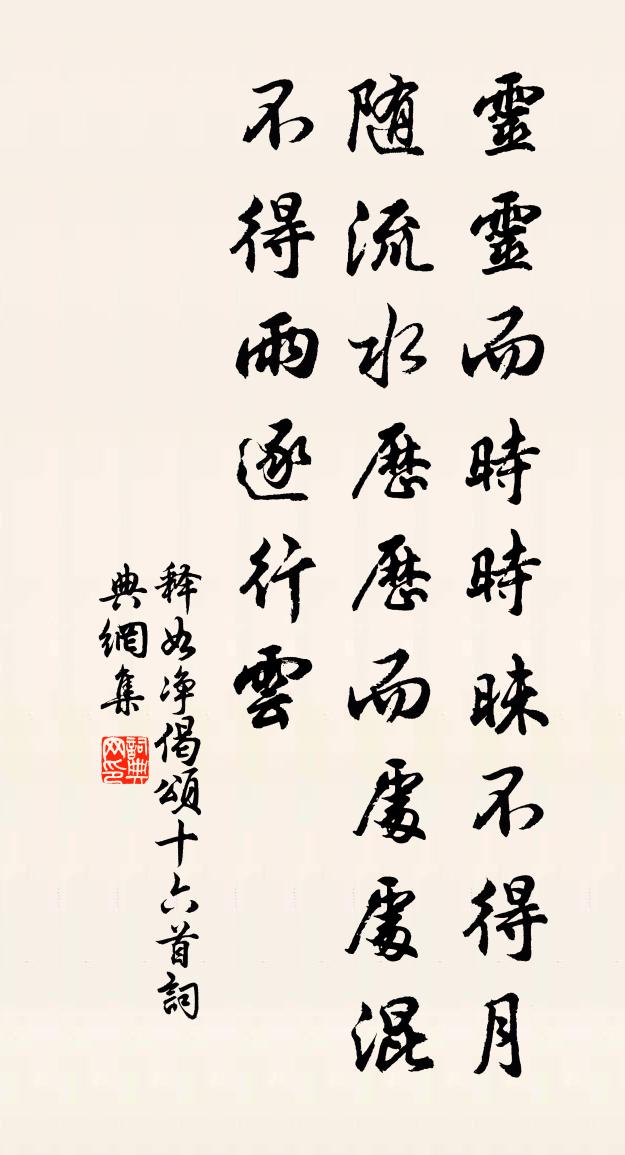 靈靈而時時昧不得月
随流水歷歷而處處混
不得雨逐行雲
释如净偈頌十六首詞
典網集
詞典网印